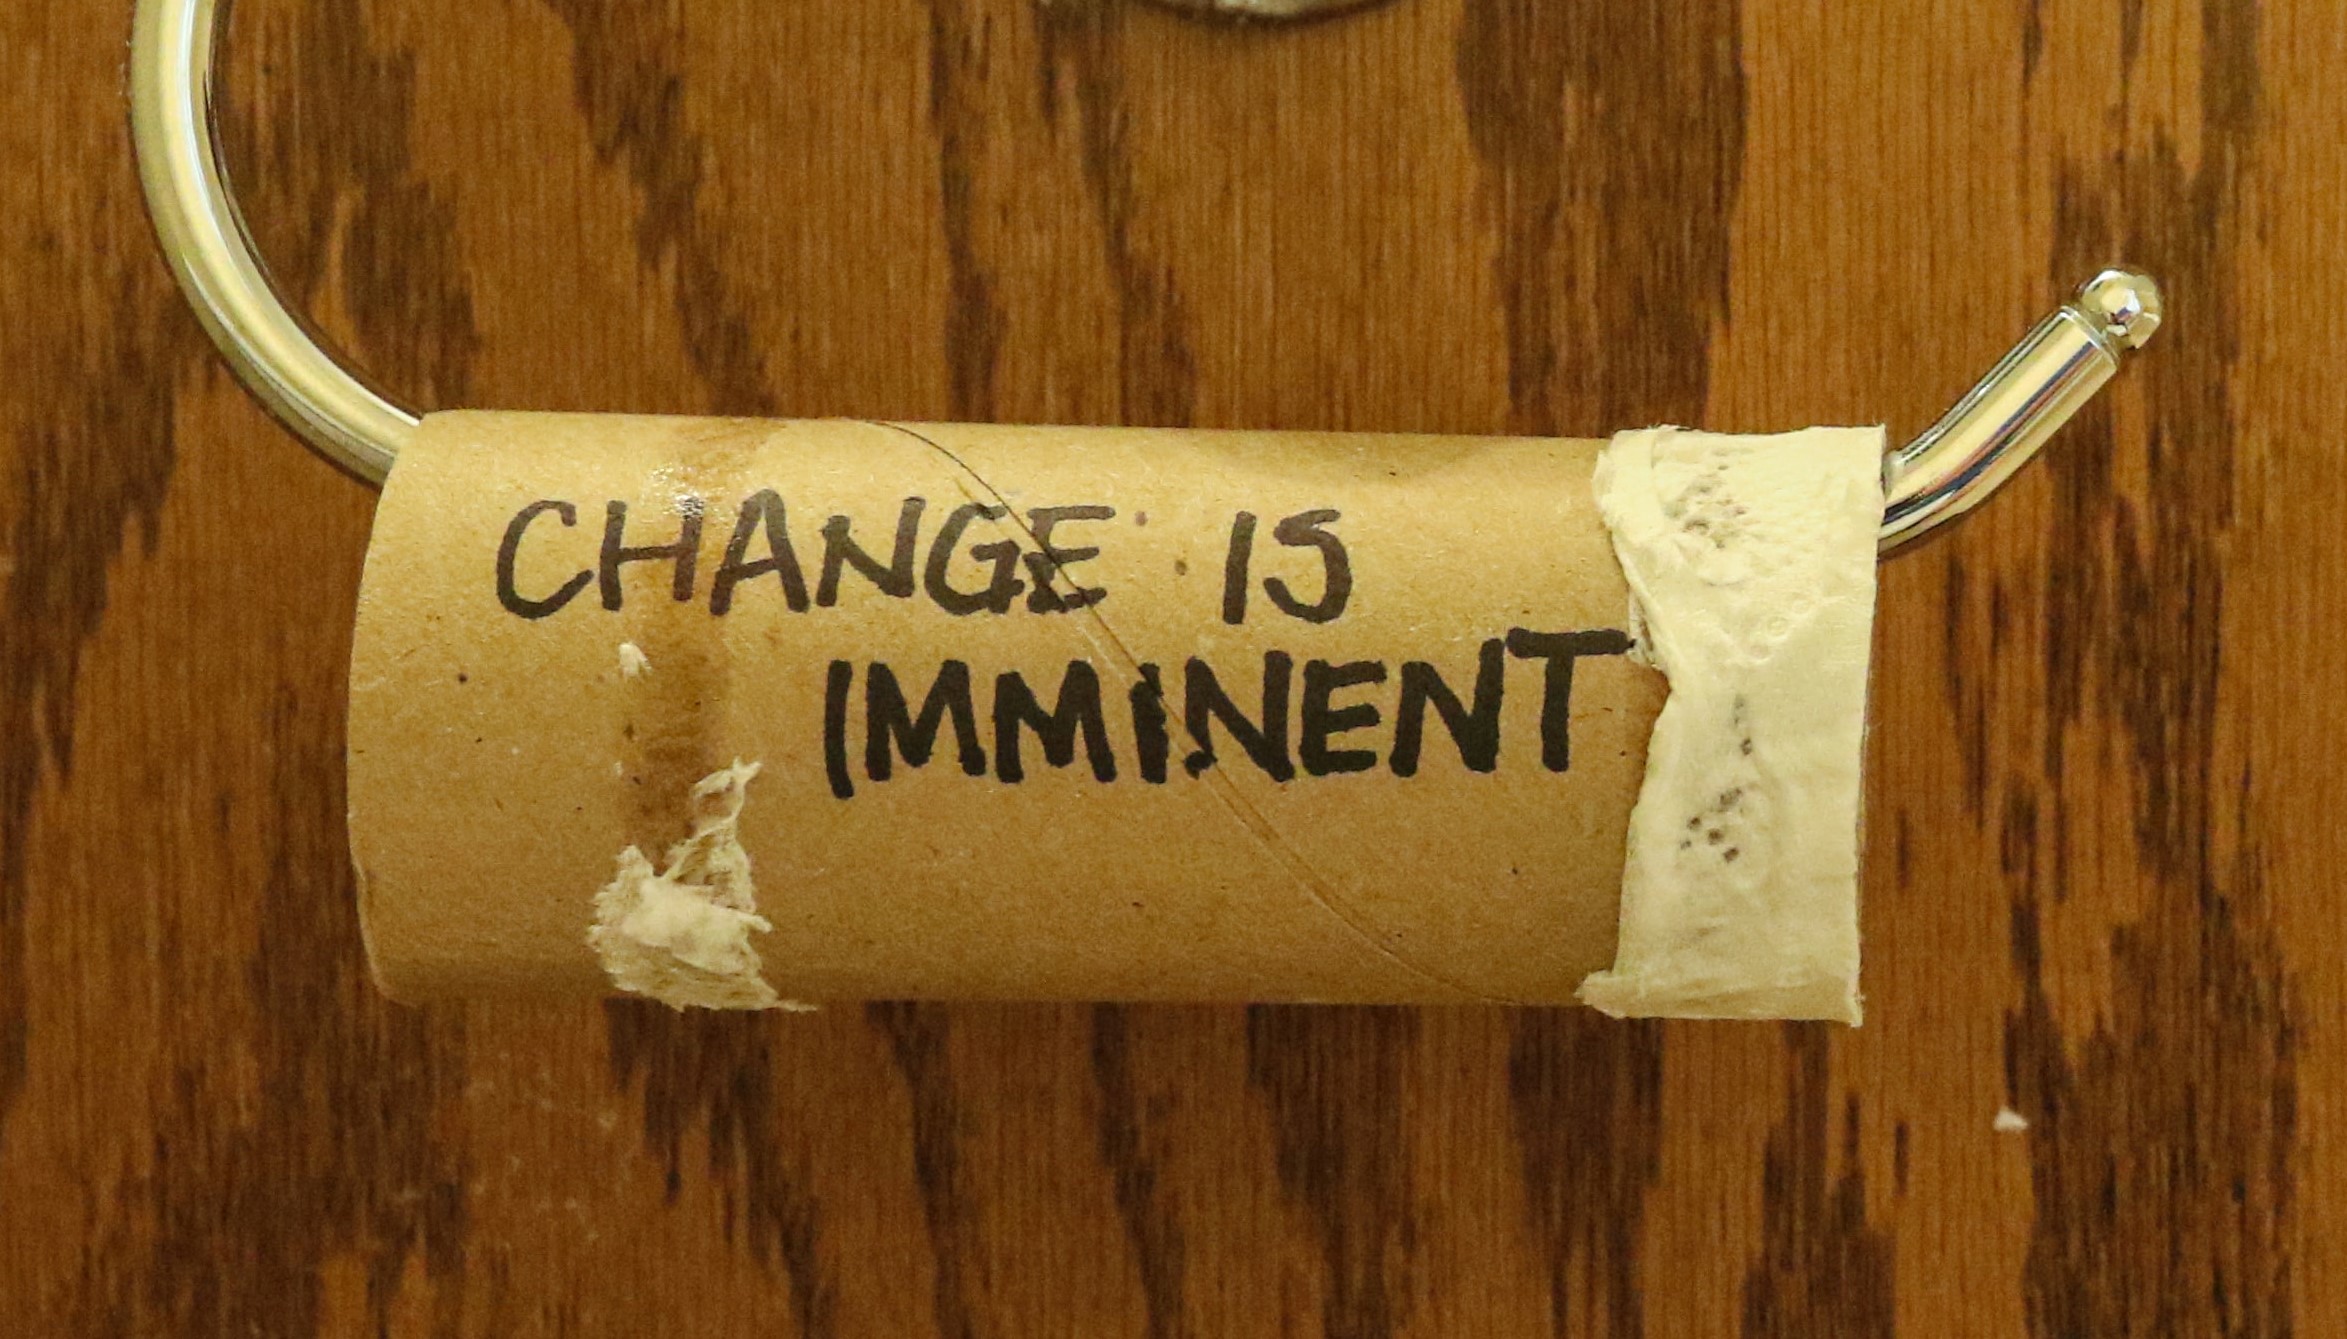 CHANGE IS
IMMINENT